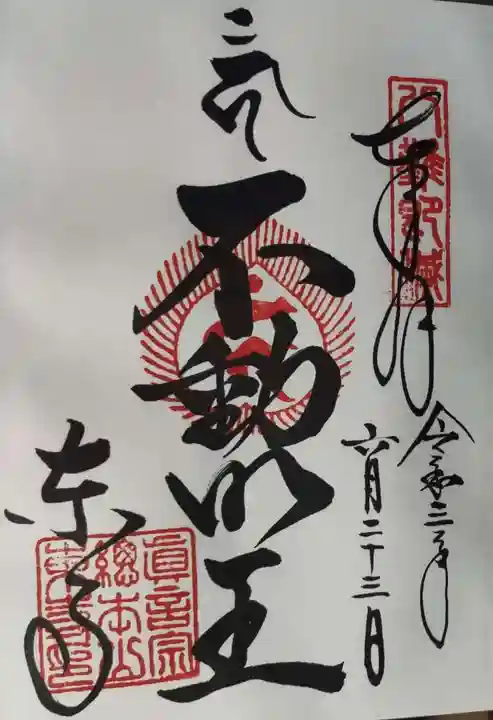 奉拝
令和三年
六月二十三日
不動明王
東寺
眞言宗
總本山